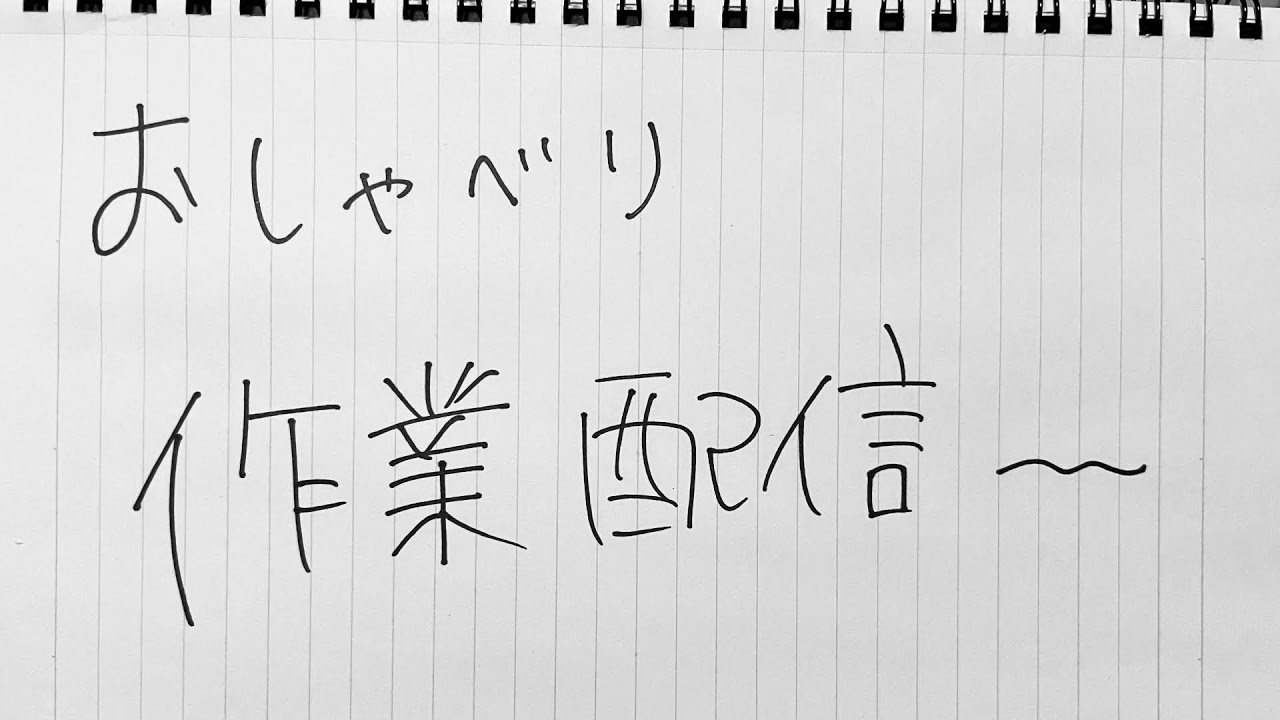 おしゃべり
作業配信〜